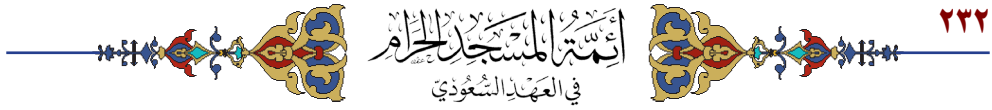 ٢٣٢
أَئِمَّةُ المَسْجِدِ الحَرَامِ
فِي العَهْدِ السُّعُودِيّ